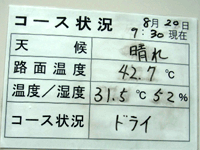 コース状況 8月20日
9:30現在
天候 晴れ
路面温度 42.7℃
温度/湿度 31.5℃ 52%
コース状況 ドライ